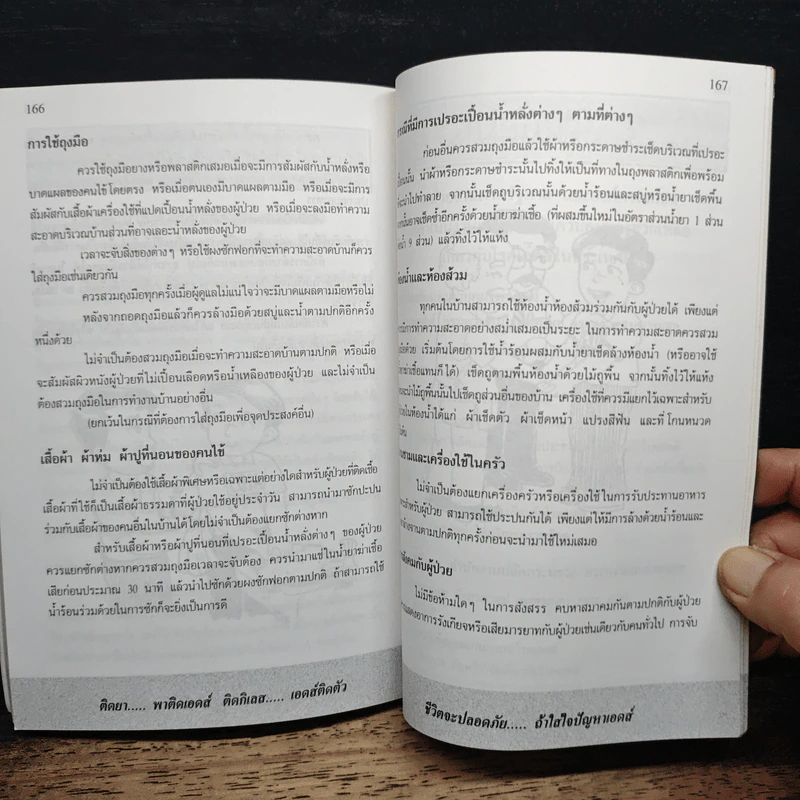 166
การใช้ถุงมือ
ควรใช้ถุงมือยางหรือพลาสติกเสมอเมื่อจะมีการสัมผัสกับน้ำหลั่งหรือ
บาดแผลของคนไข้โดยตรง หรือเมื่อตนเองมีบาดแผลตามมือ หรือเมื่อจะมีการ
สัมผัสกับเสื้อผ้าเครื่องใช้ที่แปดเปื้อนน้ำหลั่งของผู้ป่วย หรือเมื่อจะลงมือทำความ
สะอาดบริเวณบ้านส่วนที่อาจเลอะน้ำหลั่งของผู้ป่วย
เวลาจะจับสิ่งของต่างๆ หรือใช้ผงซักฟอกที่จะทำความสะอาดบ้านก็ควร
ใส่ถุงมือเช่นเดียวกัน
ควรสวมถุงมือทุกครั้งเมื่อผู้ดูแลไม่แน่ใจว่าจะมีบาดแผลตามมือหรือไม่
หลังจากถอดถุงมือแล้วก็ควรล้างมือด้วยสบู่และน้ำตามปกติอีกครั้ง
หนึ่งด้วย
ไม่จำเป็นต้องสวมถุงมือเมื่อจะทำความสะอาดบ้านตามปกติ หรือเมื่อ
จะสัมผัสผิวหนังผู้ป่วยที่ไม่เปื้อนเลือดหรือน้ำเหลืองของผู้ป่วย และไม่จำเป็น
ต้องสวมถุงมือในการทำงานบ้านอย่างอื่น
(ยกเว้นในกรณีที่ต้องการใส่ถุงมือเพื่อจุดประสงค์อื่น)
เสื้อผ้า ผ้าห่ม ผ้าปูที่นอนของคนไข้
ไม่จำเป็นต้องใช้เสื้อผ้าพิเศษหรือเฉพาะแต่อย่างใดสำหรับผู้ป่วยที่ติดเชื้อ
เสื้อผ้าที่ใช้ก็เป็นเสื้อผ้าธรรมดาที่ผู้ป่วยใช้อยู่ประจำวัน สามารถนำมาซักปะปน
ร่วมกับเสื้อผ้าของคนอื่นในบ้านได้โดยไม่จำเป็นต้องแยกซักต่างหาก
สำหรับเสื้อผ้าหรือผ้าปูที่นอนที่เปรอะเปื้อนน้ำหลั่งต่างๆ ของผู้ป่วย
ควรแยกซักต่างหากควรสวมถุงมือเวลาจะจับต้อง ควรนำมาแช่ในน้ำยาฆ่าเชื้อ
เสียก่อนประมาณ 30 นาที แล้วนำไปซักด้วยผงซักฟอกตามปกติ ถ้าสามารถใช้
น้ำร้อนร่วมด้วยในการซักก็จะยิ่งเป็นการดี
ติดยา..... พาติดเอดส์ ติดกิเลส..... เอดส์ติดตัว
167
กรณีที่มีการเปรอะเปื้อนน้ำหลั่งต่างๆ ตามที่ต่างๆ
ก่อนอื่นควรสวมถุงมือแล้วใช้ผ้าหรือกระดาษชำระเช็ดบริเวณที่เปรอะ
เปื้อนนั้น นำผ้าหรือกระดาษชำระนั้นไปทิ้งให้เป็นที่ทางในถุงพลาสติกเพื่อพร้อม
จะนำไปทำลาย จากนั้นเช็ดถูบริเวณนั้นด้วยน้ำร้อนและสบู่หรือน้ำยาเช็ดพื้น
จากนั้นอาจเช็ดซ้ำอีกครั้งด้วยน้ำยาฆ่าเชื้อ (ที่ผสมขึ้นใหม่ในอัตราส่วนน้ำยา 1 ส่วน
ต่อน้ำ 9 ส่วน) แล้วทิ้งไว้ให้แห้ง
ห้องน้ำและห้องส้วม
ทุกคนในบ้านสามารถใช้ห้องน้ำห้องส้วมร่วมกันกับผู้ป่วยได้ เพียงแต่
ควรมีการทำความสะอาดอย่างสม่ำเสมอเป็นระยะ ในการทำความสะอาดควรสวม
ถุงมือด้วย เริ่มต้นโดยการใช้น้ำร้อนผสมกับน้ำยาเช็ดล้างห้องน้ำ (หรืออาจใช้
น้ำยาฆ่าเชื้อแทนก็ได้) เช็ดถูตามพื้นห้องน้ำด้วยไม้ถูพื้น จากนั้นทิ้งไว้ให้แห้ง
จะนำไม้ถูพื้นนั้นไปเช็ดถูส่วนอื่นของบ้าน เครื่องใช้ที่ควรมีแยกไว้เฉพาะสำหรับ
ป่วยในห้องน้ำได้แก่ ผ้าเช็ดตัว ผ้าเช็ดหน้า แปรงสีฟัน และที่โกนหนวด
เป็นต้น
ชามและเครื่องใช้ในครัว
ไม่จำเป็นต้องแยกเครื่องครัวหรือเครื่องใช้ในการรับประทานอาหาร
สำหรับผู้ป่วย สามารถใช้ปะปนกันได้ เพียงแต่ให้มีการล้างด้วยน้ำร้อนและ
ล้างจานตามปกติทุกครั้งก่อนจะนำมาใช้ใหม่เสมอ
สังคมกับผู้ป่วย
ไม่มีข้อห้ามใดๆ ในการสังสรร คบหาสมาคมกันตามปกติกับผู้ป่วย
แสดงอาการรังเกียจหรือเสียมารยาทกับผู้ป่วยเช่นเดียวกับคนทั่วไป การจับ
ชีวิตจะปลอดภัย..... ถ้าใส่ใจปัญหาเอดส์